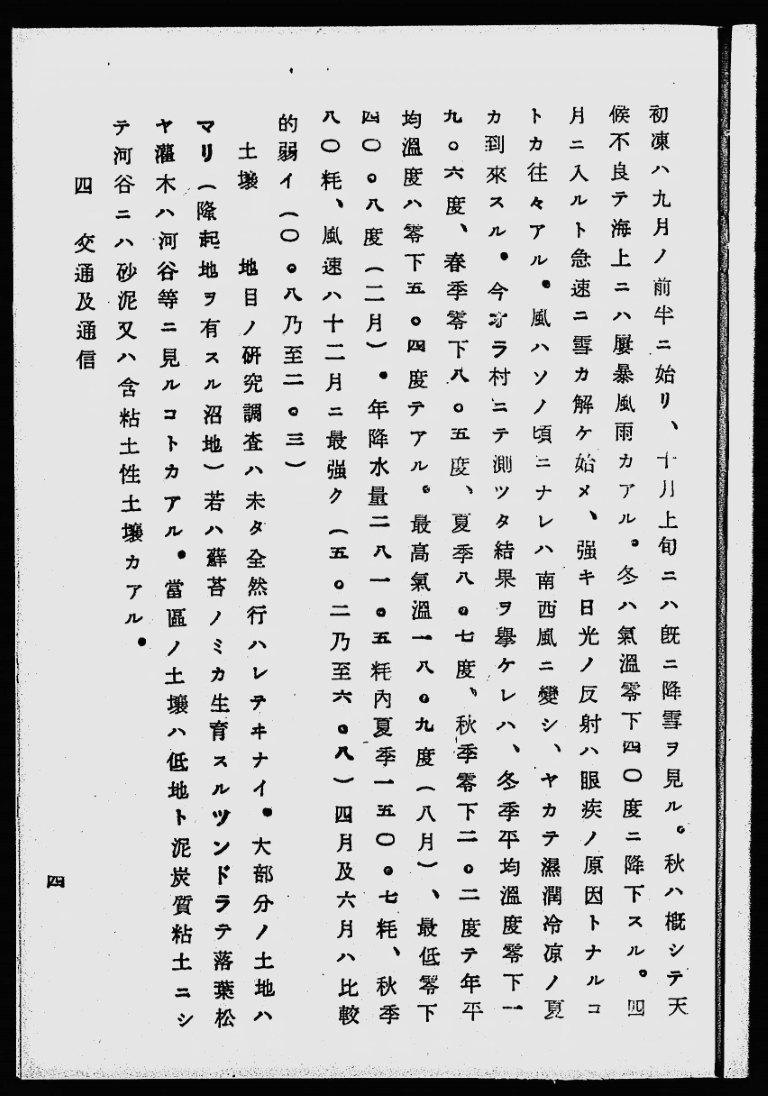 初凍ハ九月ノ前半ニ始リ、十月上旬ニハ既ニ降雪ヲ見ル。秋ハ概シテ天
候不良テ海上ニハ屢暴風雨カアル。冬ハ氣溫零下四〇度ニ降下スル。四
月ニ入ルト急速ニ雪カ解ケ始メ、强キ日光ノ反射ハ眼疾ノ原因トナルコ
トカ往々アル。風ハソノ頃ニナレハ南西風ニ變シ、ヤカテ濕潤冷凉ノ夏
カ到來スル。今オラ村ニテ測ツタ結果ヲ擧ケレハ、冬季平均溫度零下一
九。六度、春季零下八。五度、夏季八。七度、秋季零下二。二度テ年平
均溫度ハ零下五。四度テアル。最高氣溫一八。九度(八月)、最低零下
四〇。八度(二月)。年降水量二八一。五粍內夏季一五〇。七粍、秋季
八〇粍、風速ハ十二月ニ最强ク(五。二乃至六。八)四月及六月ハ比較
的弱イ(〇。八乃至二。三)
土壤　地目ノ硏究調查ハ未タ全然行ハレテヰナイ。大部分ノ土地ハ
マリ(隆起地ヲ有スル沼地)若ハ蘇苔ノミカ生育スルツンドラテ落葉松
ヤ灌木ハ河谷等ニ見ルコトカアル。當區ノ土壤ハ低地ト泥炭質粘土ニシ
テ河谷ニハ砂泥又ハ含粘土性土壤カアル。
四　交通及通信
四